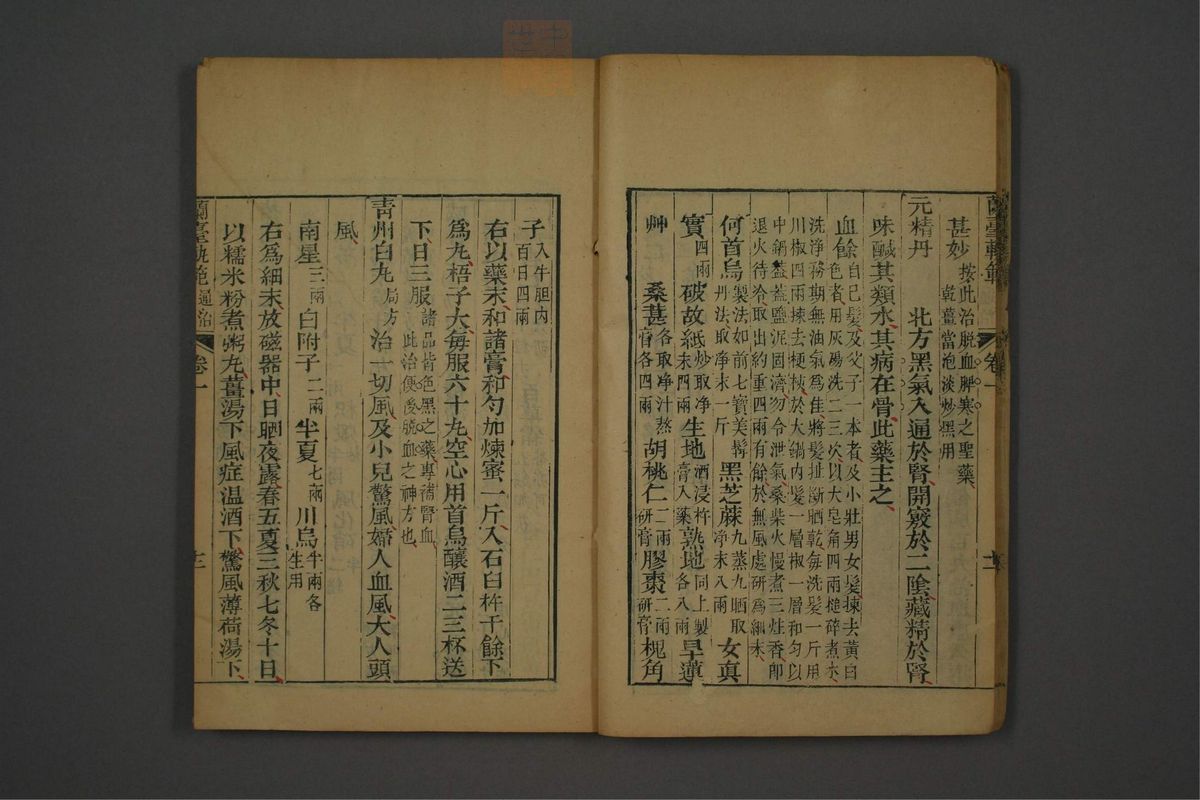 蘭臺軌範 卷一
甚妙 按此治脱血脾寒之聖藥
乾薑當泡淡炒黑用
元精丹 北方黑氣入通於腎開竅於二陰藏精於腎
味鹹其類水其病在骨此藥主之
血餘 自己髮及父子一本者及小壯男女髮揀去黃白
色者用灰湯洗二三次以大皂角四兩搥碎煮水
洗淨務期無油氣爲佳將髮扯斷晒乾每洗髮一斤用
川椒四兩揀去梗核於大鍋内髮一層椒一層和匀以
中鍋蓋蓋鹽泥固濟勿令泄氣桑柴火慢煮三炷香即
退火待冷取出約重四兩有餘於無風處研爲細末
何首烏 製法如前七寶美髯
丹法取淨末一斤 黑芝蔴 九蒸九晒取
淨末八兩 女貞
實 四兩 破故紙 炒取淨
末四兩 生地 酒浸杵
膏入藥 熟地 同上製
各八兩 旱蓮
艸 桑葚 各取淨汁熬
膏各四兩 胡桃仁 二兩
研膏 膠棗 二兩
研膏 槐角
子 入牛胆内
百日四兩
右以藥末和諸膏和匀加煉蜜一斤入石臼杵千餘下
爲丸梧子大每服六十丸空心用首烏釀酒二三杯送
下日三服 諸品皆色黑之藥專補腎血
此治便受脱血之神方也
青州白丸 局方 治一切風及小兒驚風婦人血風大人頭
風
南星 三兩 白附子 二兩 半夏 七兩 川烏 半兩各
生用
右爲細末放磁器中日晒夜露春五夏三秋七冬十日
以糯米粉煮粥丸薑湯下風症温酒下驚風薄荷湯下
蘭臺軌範 通治 卷一